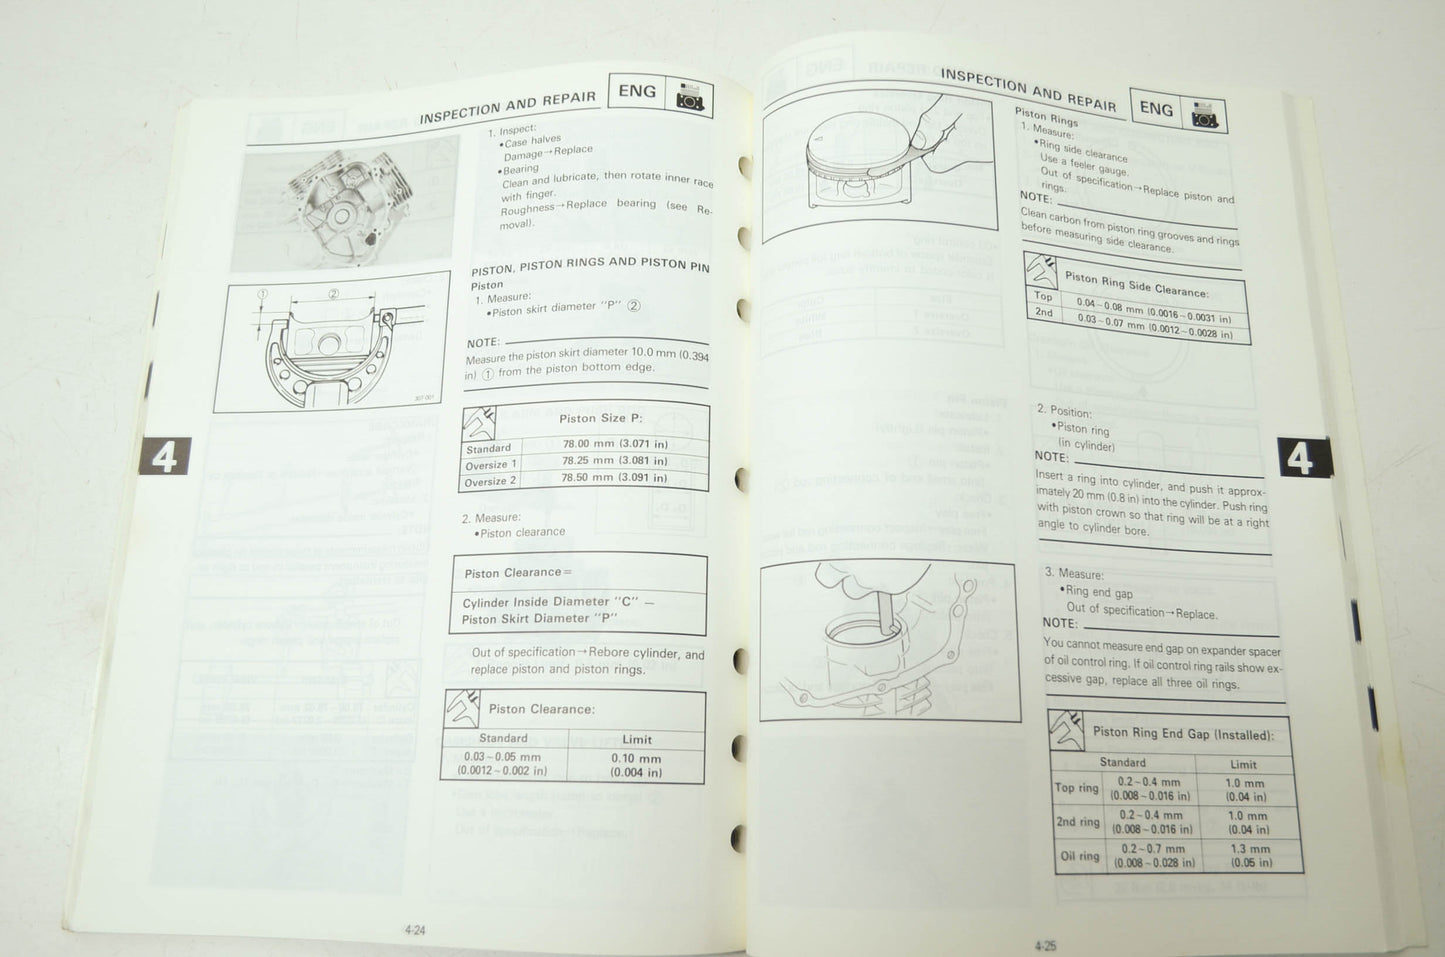 INSPECTION AND REPAIR
ENG
1. Inspect:
•Case halves
Damage→Replace
•Bearing
Clean and lubricate, then rotate inner race
with finger.
Roughness→Replace bearing (see Re-
moval).
PISTON, PISTON RINGS AND PISTON PIN
Piston
1. Measure:
•Piston skirt diameter "P" ②
① ②
307-001
NOTE:
Measure the piston skirt diameter 10.0 mm (0.394
in) ① from the piston bottom edge.
Piston Size P:
Standard 78.00 mm (3.071 in)
Oversize 1 78.25 mm (3.081 in)
Oversize 2 78.50 mm (3.091 in)
4
2. Measure:
•Piston clearance
Piston Clearance=
Cylinder Inside Diameter "C" —
Piston Skirt Diameter "P"
Out of specification→Rebore cylinder, and
replace piston and piston rings.
Piston Clearance:
Standard Limit
0.03~0.05 mm 0.10 mm
(0.0012~0.002 in) (0.004 in)
4-24
INSPECTION AND REPAIR
ENG
Piston Rings
1. Measure:
•Ring side clearance
Use a feeler gauge.
Out of specification→Replace piston and
rings.
NOTE:
Clean carbon from piston ring grooves and rings
before measuring side clearance.
Piston Ring Side Clearance:
Top 0.04~0.08 mm (0.0016~0.0031 in)
2nd 0.03~0.07 mm (0.0012~0.0028 in)
2. Position:
•Piston ring
(in cylinder)
NOTE:
Insert a ring into cylinder, and push it approx-
imately 20 mm (0.8 in) into the cylinder. Push ring
with piston crown so that ring will be at a right
angle to cylinder bore.
4
3. Measure:
•Ring end gap
Out of specification→Replace.
NOTE:
You cannot measure end gap on expander spacer
of oil control ring. If oil control ring rails show ex-
cessive gap, replace all three oil rings.
Piston Ring End Gap (Installed):
Standard Limit
Top ring 0.2~0.4 mm 1.0 mm
(0.008~0.016 in) (0.04 in)
2nd ring 0.2~0.4 mm 1.0 mm
(0.008~0.016 in) (0.04 in)
Oil ring 0.2~0.7 mm 1.3 mm
(0.008~0.028 in) (0.05 in)
4-25